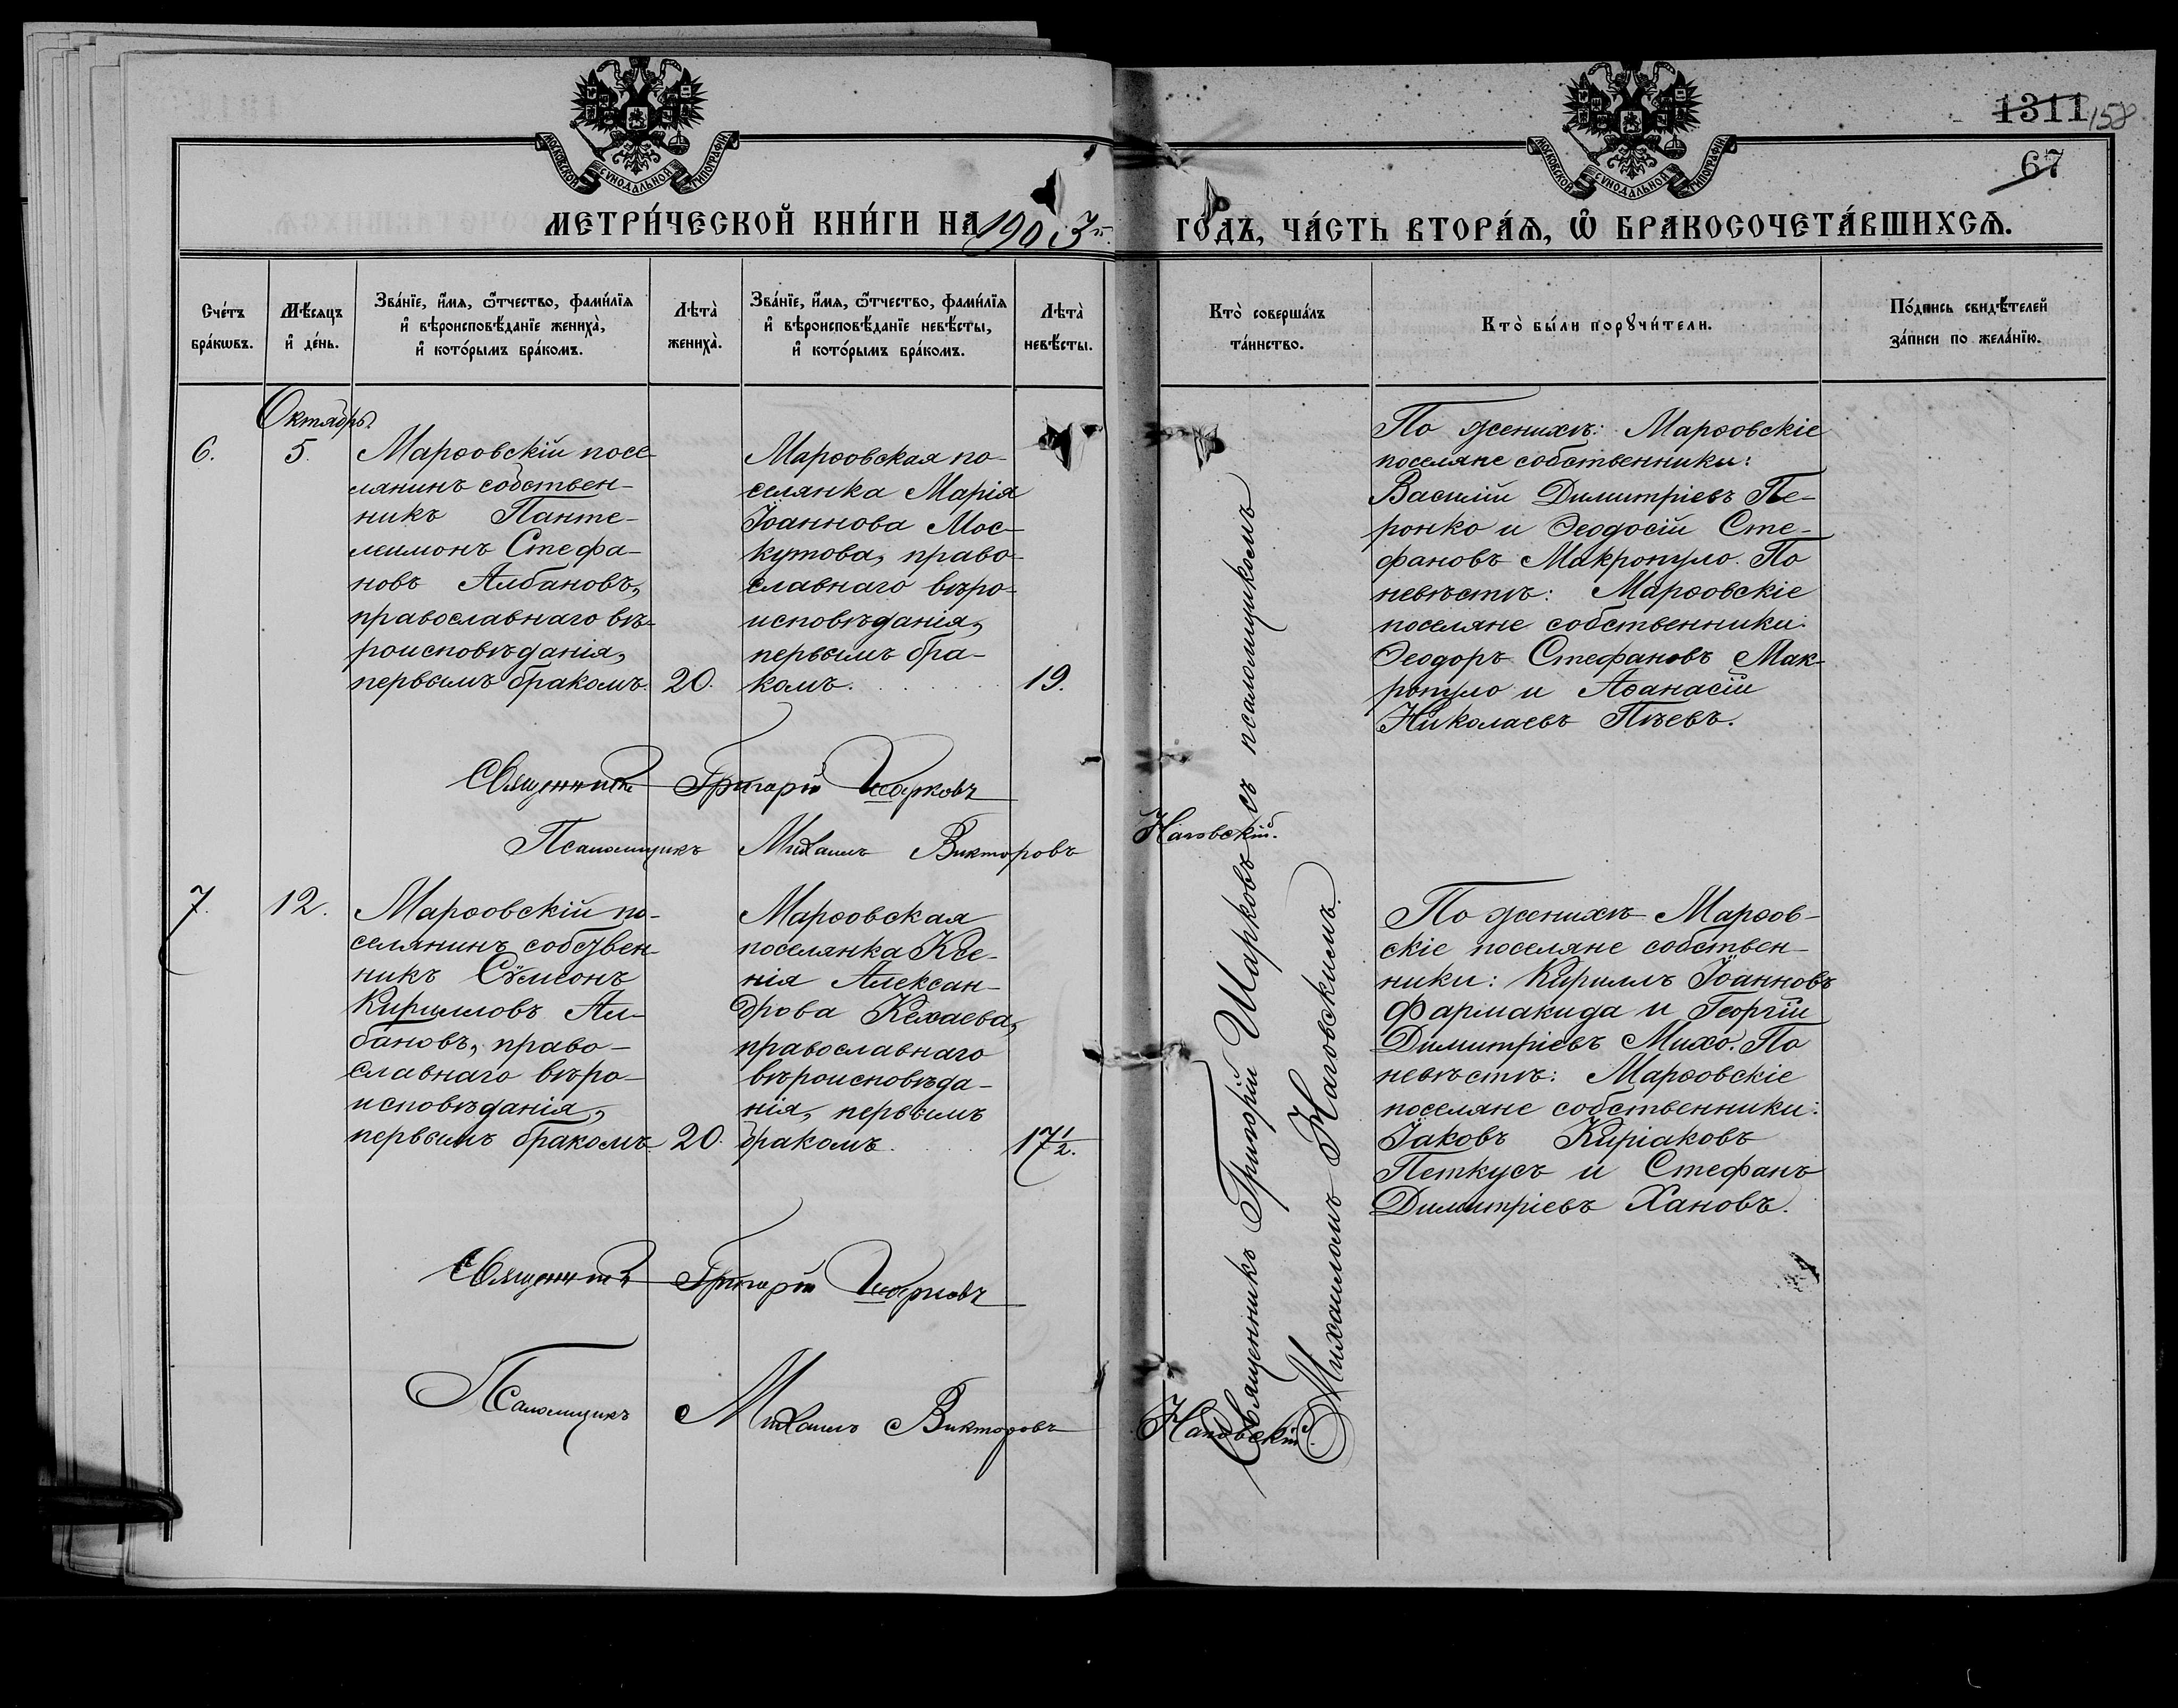 1311 158
67
МОСКОВСКОЙ СѴНОДАЛЬНОЙ ТИПОГРАФІИ
МОСКОВСКОЙ СѴНОДАЛЬНОЙ ТИПОГРАФІИ
МЕТРИ́ЧЕСКОЙ КНИ́ГИ НА 1903 г. ГО́ДЪ, ЧА́СТЬ ВТОРА́Ѧ, Ѡ҆ БРАКОСОЧЕТА́ВШИХСѦ.
Сче́тъ
бра́кѡвъ.
Мѣ́сяцъ
и҆ де́нь.
Зва́нїе, и҆́мя, ѻ҆́тчество, фами́лїя
и҆ вѣроисповѣ́данїе жениха̀,
и҆ кото́рымъ бра́комъ.
Лѣта̀
жениха̀.
Зва́нїе, и҆́мя, ѻ҆́тчество, фами́лїя
и҆ вѣроисповѣ́данїе невѣ́сты,
и҆ кото́рымъ бра́комъ.
Лѣта̀
невѣ́сты.
Кто̀ соверша́лъ
та́инство.
Кто̀ бы́ли порꙋчи́тели.
По́дпись свидѣ́телей
за́писи по жела́нїю.
Октябрь.
6.
5.
Марѳовскій посе-
лянинъ собствен-
никъ Панте-
леимонъ Стефа-
новъ Албановъ,
православнаго вѣ-
роисповѣданія,
первымъ бракомъ.
20.
Марѳовская по-
селянка Марія
Іоаннова Мос-
кутова, право-
славнаго вѣро-
исповѣданія,
первымъ бра-
комъ.
19.
По женихѣ: Марѳовскіе
поселяне собственники:
Василій Димитріевъ Пе-
ронко и Ѳеодосій Сте-
фановъ Макропуло. По
невѣстѣ: Марѳовскіе
поселяне собственники:
Ѳеодоръ Стефановъ Мак-
ропуло и Аѳанасій
Николаевъ Пѣевъ.
Священникъ Григорій Шарковъ
Псаломщикъ Михаилъ Викторовъ Наговскій.
7.
12.
Марѳовскій по-
селянинъ собствен-
никъ Сѵмеонъ
Кирилловъ Ал-
бановъ, право-
славнаго вѣро-
исповѣданія,
первымъ бракомъ.
20.
Марѳовская
поселянка Ксе-
нія Алексан-
дрова Кехаева,
православнаго
вѣроисповѣда-
нія, первымъ
бракомъ.
17 1/2.
По женихѣ Марѳов-
скіе поселяне собствен-
ники: Кириллъ Іоанновъ
Фармакида и Георгій
Димитріевъ Михо. По
невѣстѣ: Марѳовскіе
поселяне собственники:
Іаковъ Киріаковъ
Петкусъ и Стефанъ
Димитріевъ Хановъ.
Священникъ Григорій Шарковъ
Псаломщикъ Михаилъ Викторовъ Наговскій.
Священникъ Григорій Шарковъ съ псаломщикомъ
Михаиломъ Наговскимъ.